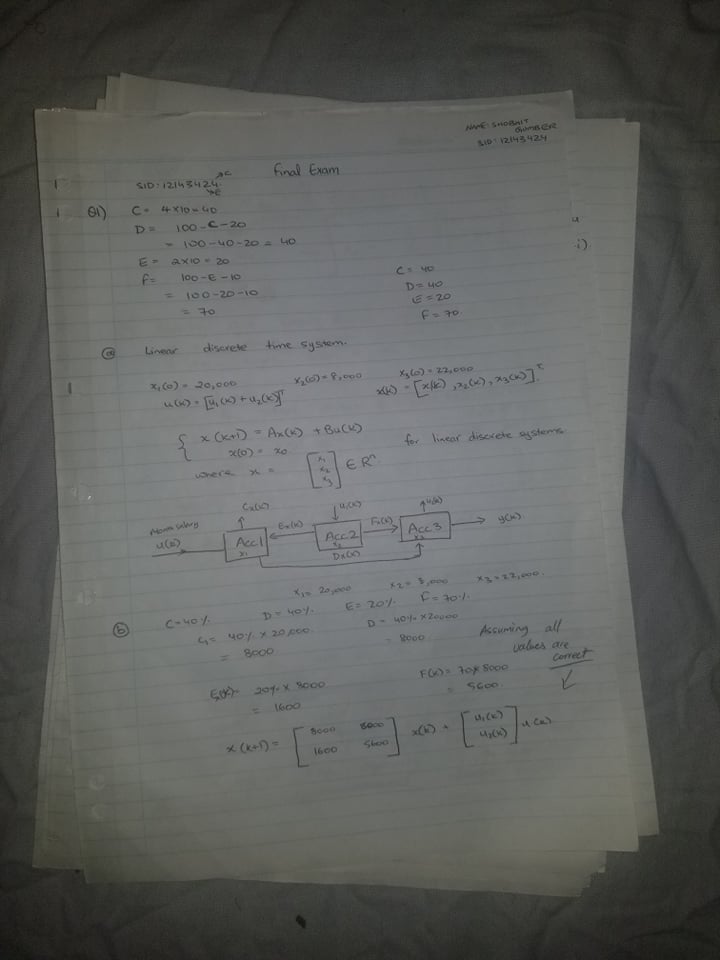 NAME: SHOBHIT
GUMBER
SID: 12143424
Final Exam
SID: 12143424 → C
→ E
Q1) C = 4×10 = 40
D = 100-C-20
= 100-40-20 = 40
E = 2×10 = 20
F = 100-E-10
= 100-20-10
= 70
C = 40
D = 40
E = 20
F = 70
i)
(a) Linear discrete time system.
x₁(0) = 20,000 x₂(0) = 8,000 x₃(0) = 22,000
u(k) = [u₁(k) + u₂(k)]ᵀ x(k) = [x(k), x₂(k), x₃(k)]ᵀ.
{ x(k+1) = Ax(k) + Bu(k) for linear discrete systems.
x(0) = x₀
where x = [x₁ x₂ x₃] ∈ Rⁿ.
Cx(k) u₁(k)
salary Ex(k) Fx(k)
u(k) Acc1 Acc2 Acc3 y(k)
x₁ x₂ x₃
Dx(k)
x₁ = 20,000 x₂ = 8,000 x₃ = 22,000.
(b) C = 40% D = 40% E = 20% F = 70%
C₁ = 40% × 20,000. D = 40% × 20000
= 8000 = 8000
Assuming all
values are
correct
20% × 8000 F(k) = 70% 8000
= 1600 = 5600
x(k+1) = [8000 8000
1600 5600] x(k) + [u₁(k)
u₂(k)] u(k)